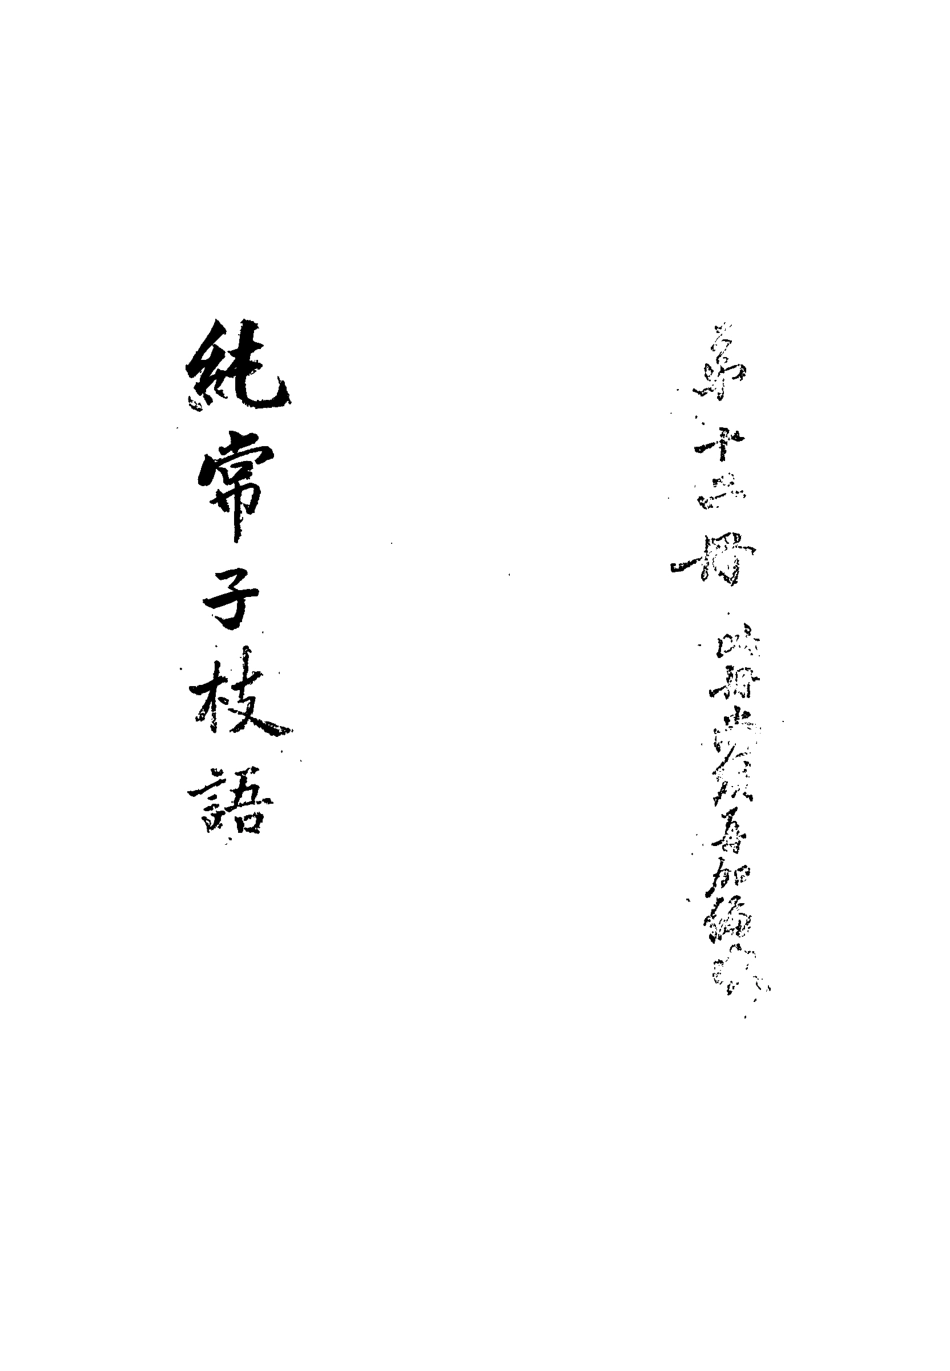 第十二冊 此冊尚須再加編次
純常子枝語